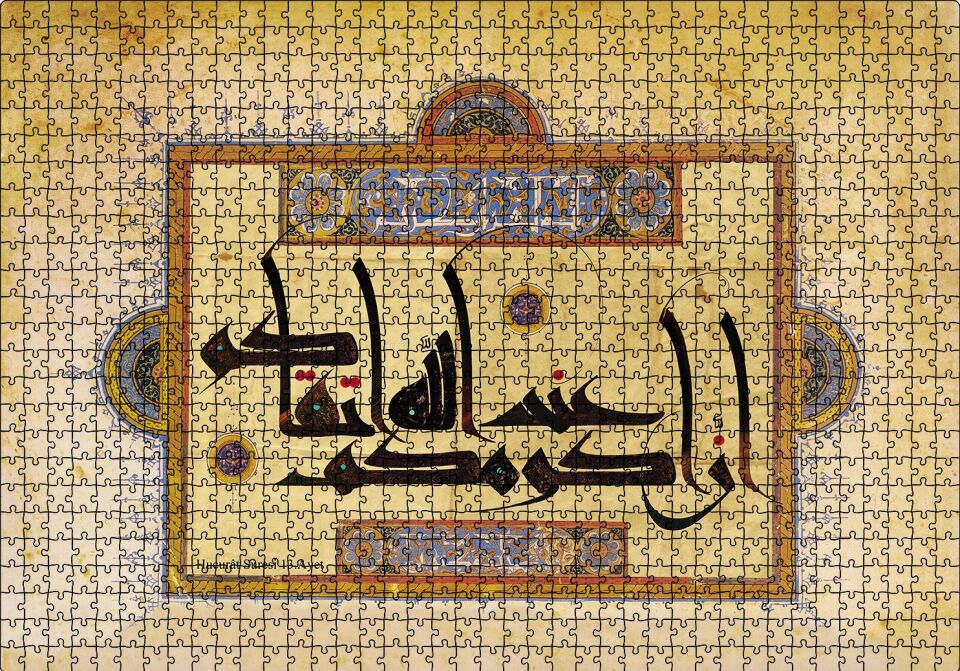 ان اكرمكم عند الله اتقاكم
Hucurât Sûresi 13.Ayet